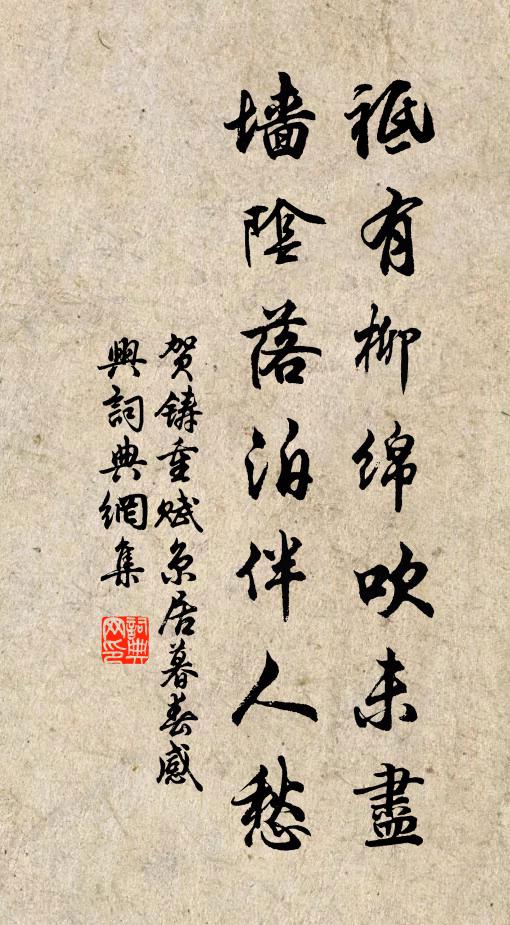 祗有柳綿吹未盡
墻陰落泊伴人愁
贺鑄重赋京居暮春感
興詞典網集
詞典
网印